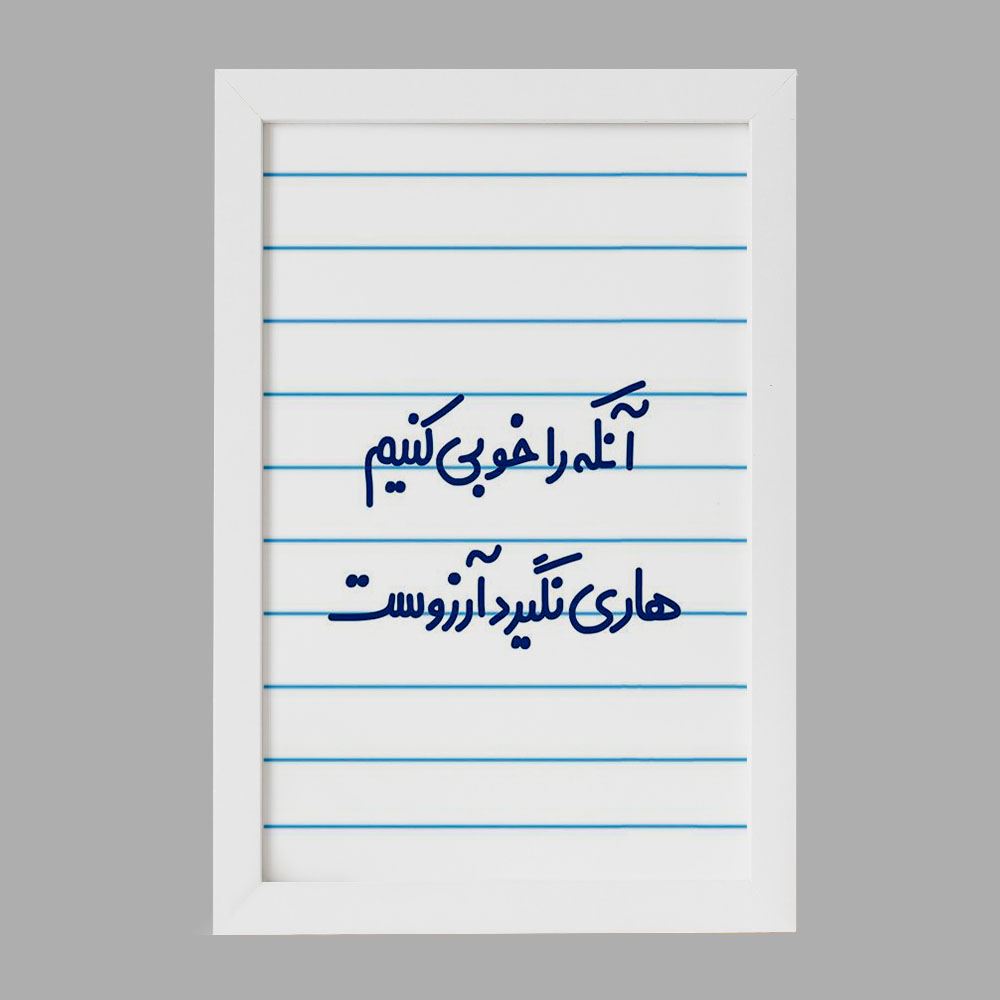 آنکه را خوبی کنیم
هاری نگیرد آرزوست